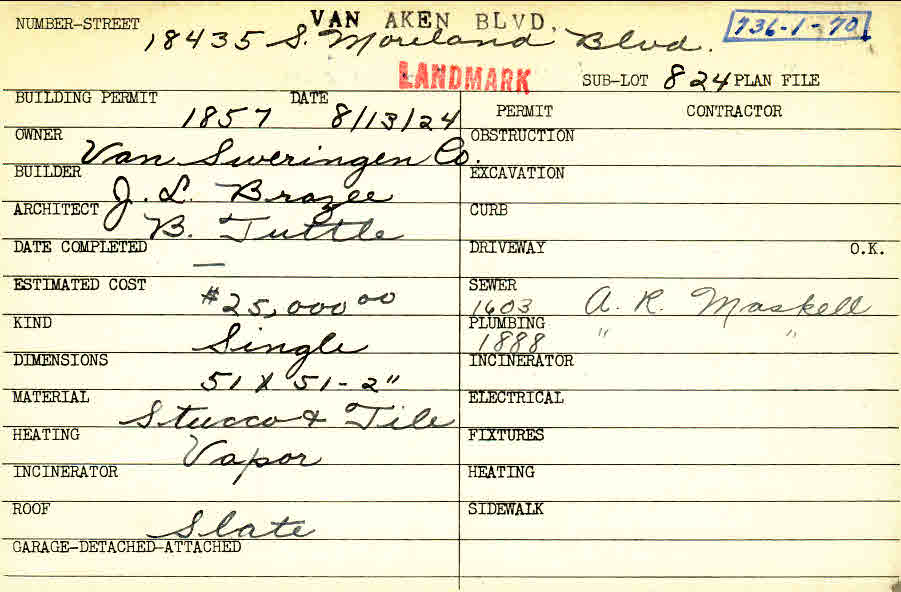 NUMBER-STREET VAN AKEN BLVD. 736-1-70
18435 S. Moreland Blvd.
LANDMARK SUB-LOT 824 PLAN FILE
BUILDING PERMIT DATE PERMIT CONTRACTOR
1857 8/13/24
OWNER OBSTRUCTION
Van Sweringen Co.
BUILDER EXCAVATION
J. L. Brazee
ARCHITECT CURB
B. Tuttle
DATE COMPLETED DRIVEWAY O.K.
—
ESTIMATED COST SEWER
#25,000 00 1603 A. R. Maskell
KIND PLUMBING
Single 1888 " "
DIMENSIONS INCINERATOR
51 X 51-2"
MATERIAL ELECTRICAL
Stucco & Tile
HEATING FIXTURES
Vapor
INCINERATOR HEATING
ROOF SIDEWALK
Slate
GARAGE-DETACHED-ATTACHED